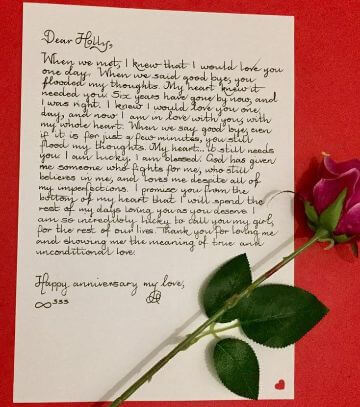 Dear Holly,
When we met, I knew that I would love you
one day. When we said good bye, you
flooded my thoughts. My heart knew it
needed you. Six years have gone by now, and
I was right. I knew I would love you one
day, and now I am in love with you, with
my whole heart. When we say good bye, even
if it is for just a few minutes, you still
flood my thoughts. My heart... it still needs
you. I am lucky. I am blessed. God has given
me someone who fights for me, who still
believes in me, and loves me despite all of
my imperfections. I promise you from the
bottom of my heart that I will spend the
rest of my days loving you as you deserve. I
am so incredibly lucky to call you my girl,
for the rest of our lives. Thank you for loving me
and showing me the meaning of true and
unconditional love.
Happy anniversary my love,
∞